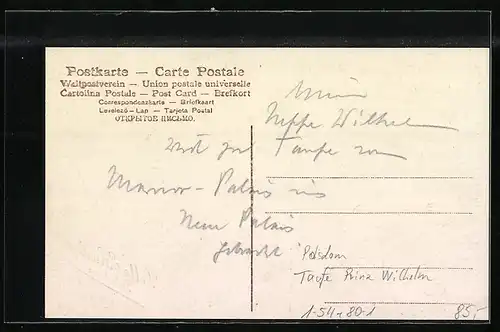 Postkarte — Carte Postale
Weltpostverein — Union postale universelle
Cartolina Postale — Post Card — Brefkort
Correspondenzkarte — Briefkaart
Levelező-Lap — Tarjeta Postal
ОТКРЫТОЕ ПИСЬМО.
Wilhelm
wird zur Taufe vom
Marmor-Palais ins
Neue Palais
gebracht
Potsdam
Taufe Prinz Wilhelm
1-54-80-1
85,-